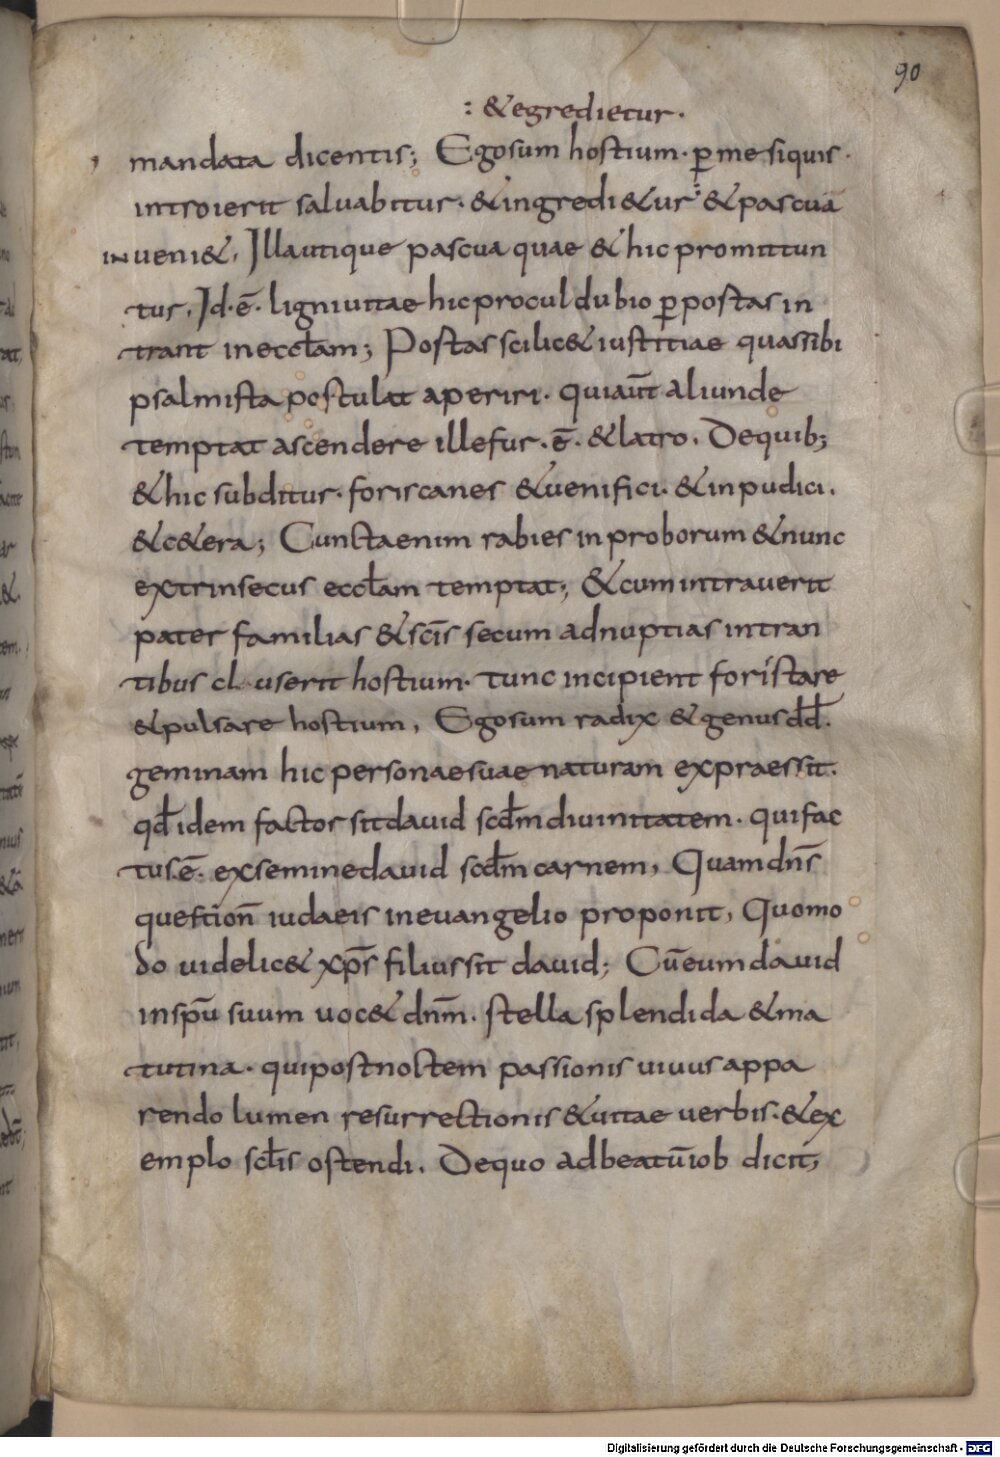 90
: & egredietur.
mandata dicentis; Ego sum hostium. p̱ me siquis.
introierit saluabitur. & ingredi&ur : & pascuā
inueni&. Illa utique pascua quae & hic promittun
tur. Id. ē. ligni uitae hic procul dubio p̱ postas in
trant in eccl̄am; Postas scilic& iustitiae quas sibi
psalmista postulat aperiri. quiaūt aliunde
temptat ascendere ille fur. ē. & latro. De quib;
& hic subditur. foris canes & uenifici. & inpudici.
& c&era; Cuncta enim rabies inproborum & nunc
extrinsecus eccl̄am temptat; & cum intrauerit
pater familias & sc̄is secum ad nuptias intran
tibus cl userit hostium. tunc incipient foris stare
& pulsare hostium, Ego sum radix & genus dd̄.
geminam hic personae suae naturam expraessit.
qd̄ idem factor sit dauid scd̄m diuinitatem. qui fac
tus ē. ex semine dauid scd̄m carnem, Quam dn̄s
question̄ iudaeis in euangelio proponit, Quomo
do uidelic& xp̄s filius sit dauid; Cū eum dauid
in sp̄u suum uoc& dn̄m. stella splendida & ma
tutina. qui post noctem passionis uiuus appa
rendo lumen resurrectionis & uitae uerbis. & ex
emplo sc̄is ostendi. De quo ad beatū iob dicit;
Digitalisierung gefördert durch die Deutsche Forschungsgemeinschaft - DFG